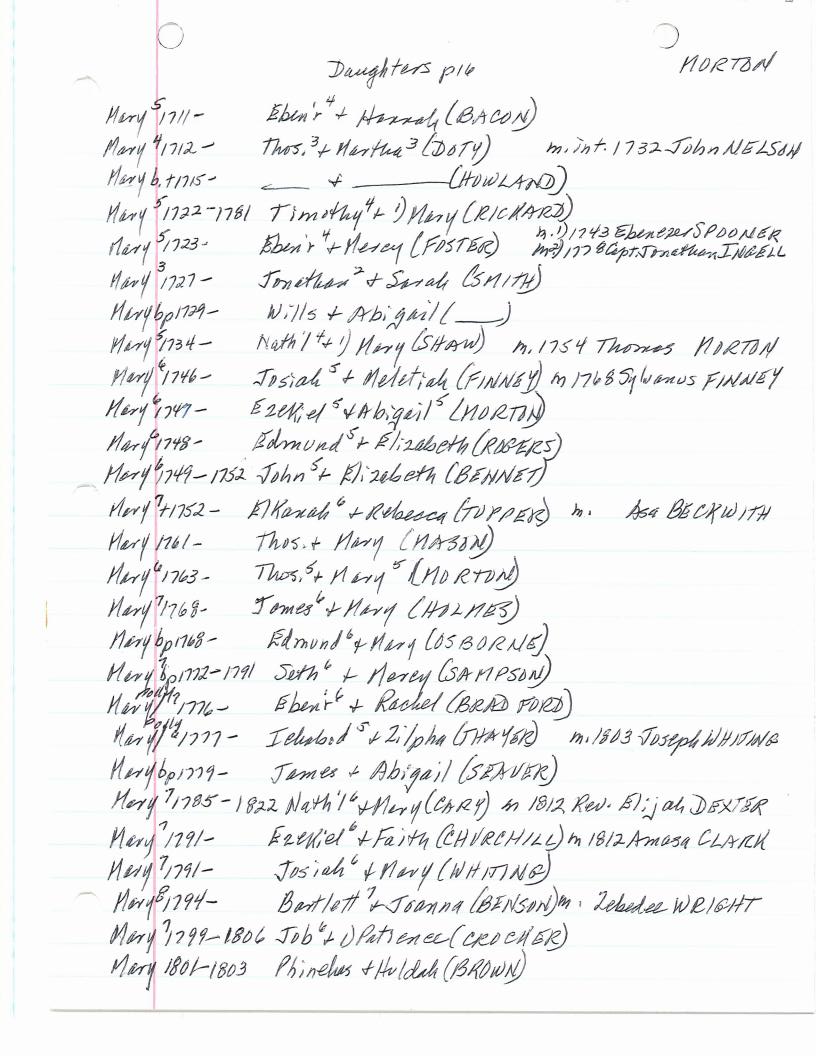 Daughters p16 MORTON
Mary⁵ 1711- Eben'r⁴ + Hannah (BACON)
Mary⁴ 1712- Thos.³ + Martha³ (DOTY) m.int. 1732 John NELSON
Mary b.+1715- ____ + ________ (HOWLAND)
Mary⁵ 1722-1781 Timothy⁴ + 1) Mary (RICHARD) m.1) 1743 Ebenezer SPOONER
Mary⁵ 1723- Eben'r⁴ + Mercy (FOSTER) m2) 1778 Capt. Jonathan INGELL
Mary³ 1727- Jonathan² + Sarah (SMITH)
Mary bp 1729- Wills + Abigail (____)
Mary⁵ 1734- Nath'l⁴ + 1) Mary (SHAW) m. 1754 Thomas MORTON
Mary⁶ 1746- Josiah⁵ + Meletiah (FINNEY) m 1768 Sylvanus FINNEY
Mary⁶ 1747- Ezekiel⁵ + Abigail⁵ (MORTON)
Mary⁶ 1748- Edmund⁵ + Elizabeth (ROGERS)
Mary⁶ 1749-1752 John⁵ + Elizabeth (BENNET)
Mary⁷ +1752- Elkanah⁶ + Rebecca (TUPPER) m. Asa BECKWITH
Mary 1761- Thos. + Mary (MASON)
Mary⁶ 1763- Thos.⁵ + Mary⁵ (MORTON)
Mary⁷ 1768- James⁶ + Mary (HOLMES)
Mary bp 1768- Edmund⁶ + Mary (OSBORNE)
Mary⁷ bp 1772-1791 Seth⁶ + Mercy (SAMPSON)
Mary/⁷ 1776- Eben'r⁶ + Rachel (BRADFORD)
Mary/Polly⁶ 1777- Ichabod⁵ + Zilpha (THAYER) m.1803 Joseph WHITING
Mary bp 1779- James + Abigail (SEAVER)
Mary⁷ 1785-1822 Nath'l⁶ + Mary (CARY) m 1812 Rev. Elijah DEXTER
Mary⁷ 1791- Ezekiel⁶ + Faith (CHURCHILL) m 1812 Amasa CLARK
Mary⁷ 1791- Josiah⁶ + Mary (WHITING)
Mary⁸ 1794- Bartlett⁷ + Joanna (BENSON) m. Zebedee WRIGHT
Mary⁷ 1799-1806 Job⁶ + 1) Patience (CROCHER)
Mary 1801-1803 Phinehes + Huldah (BROWN)